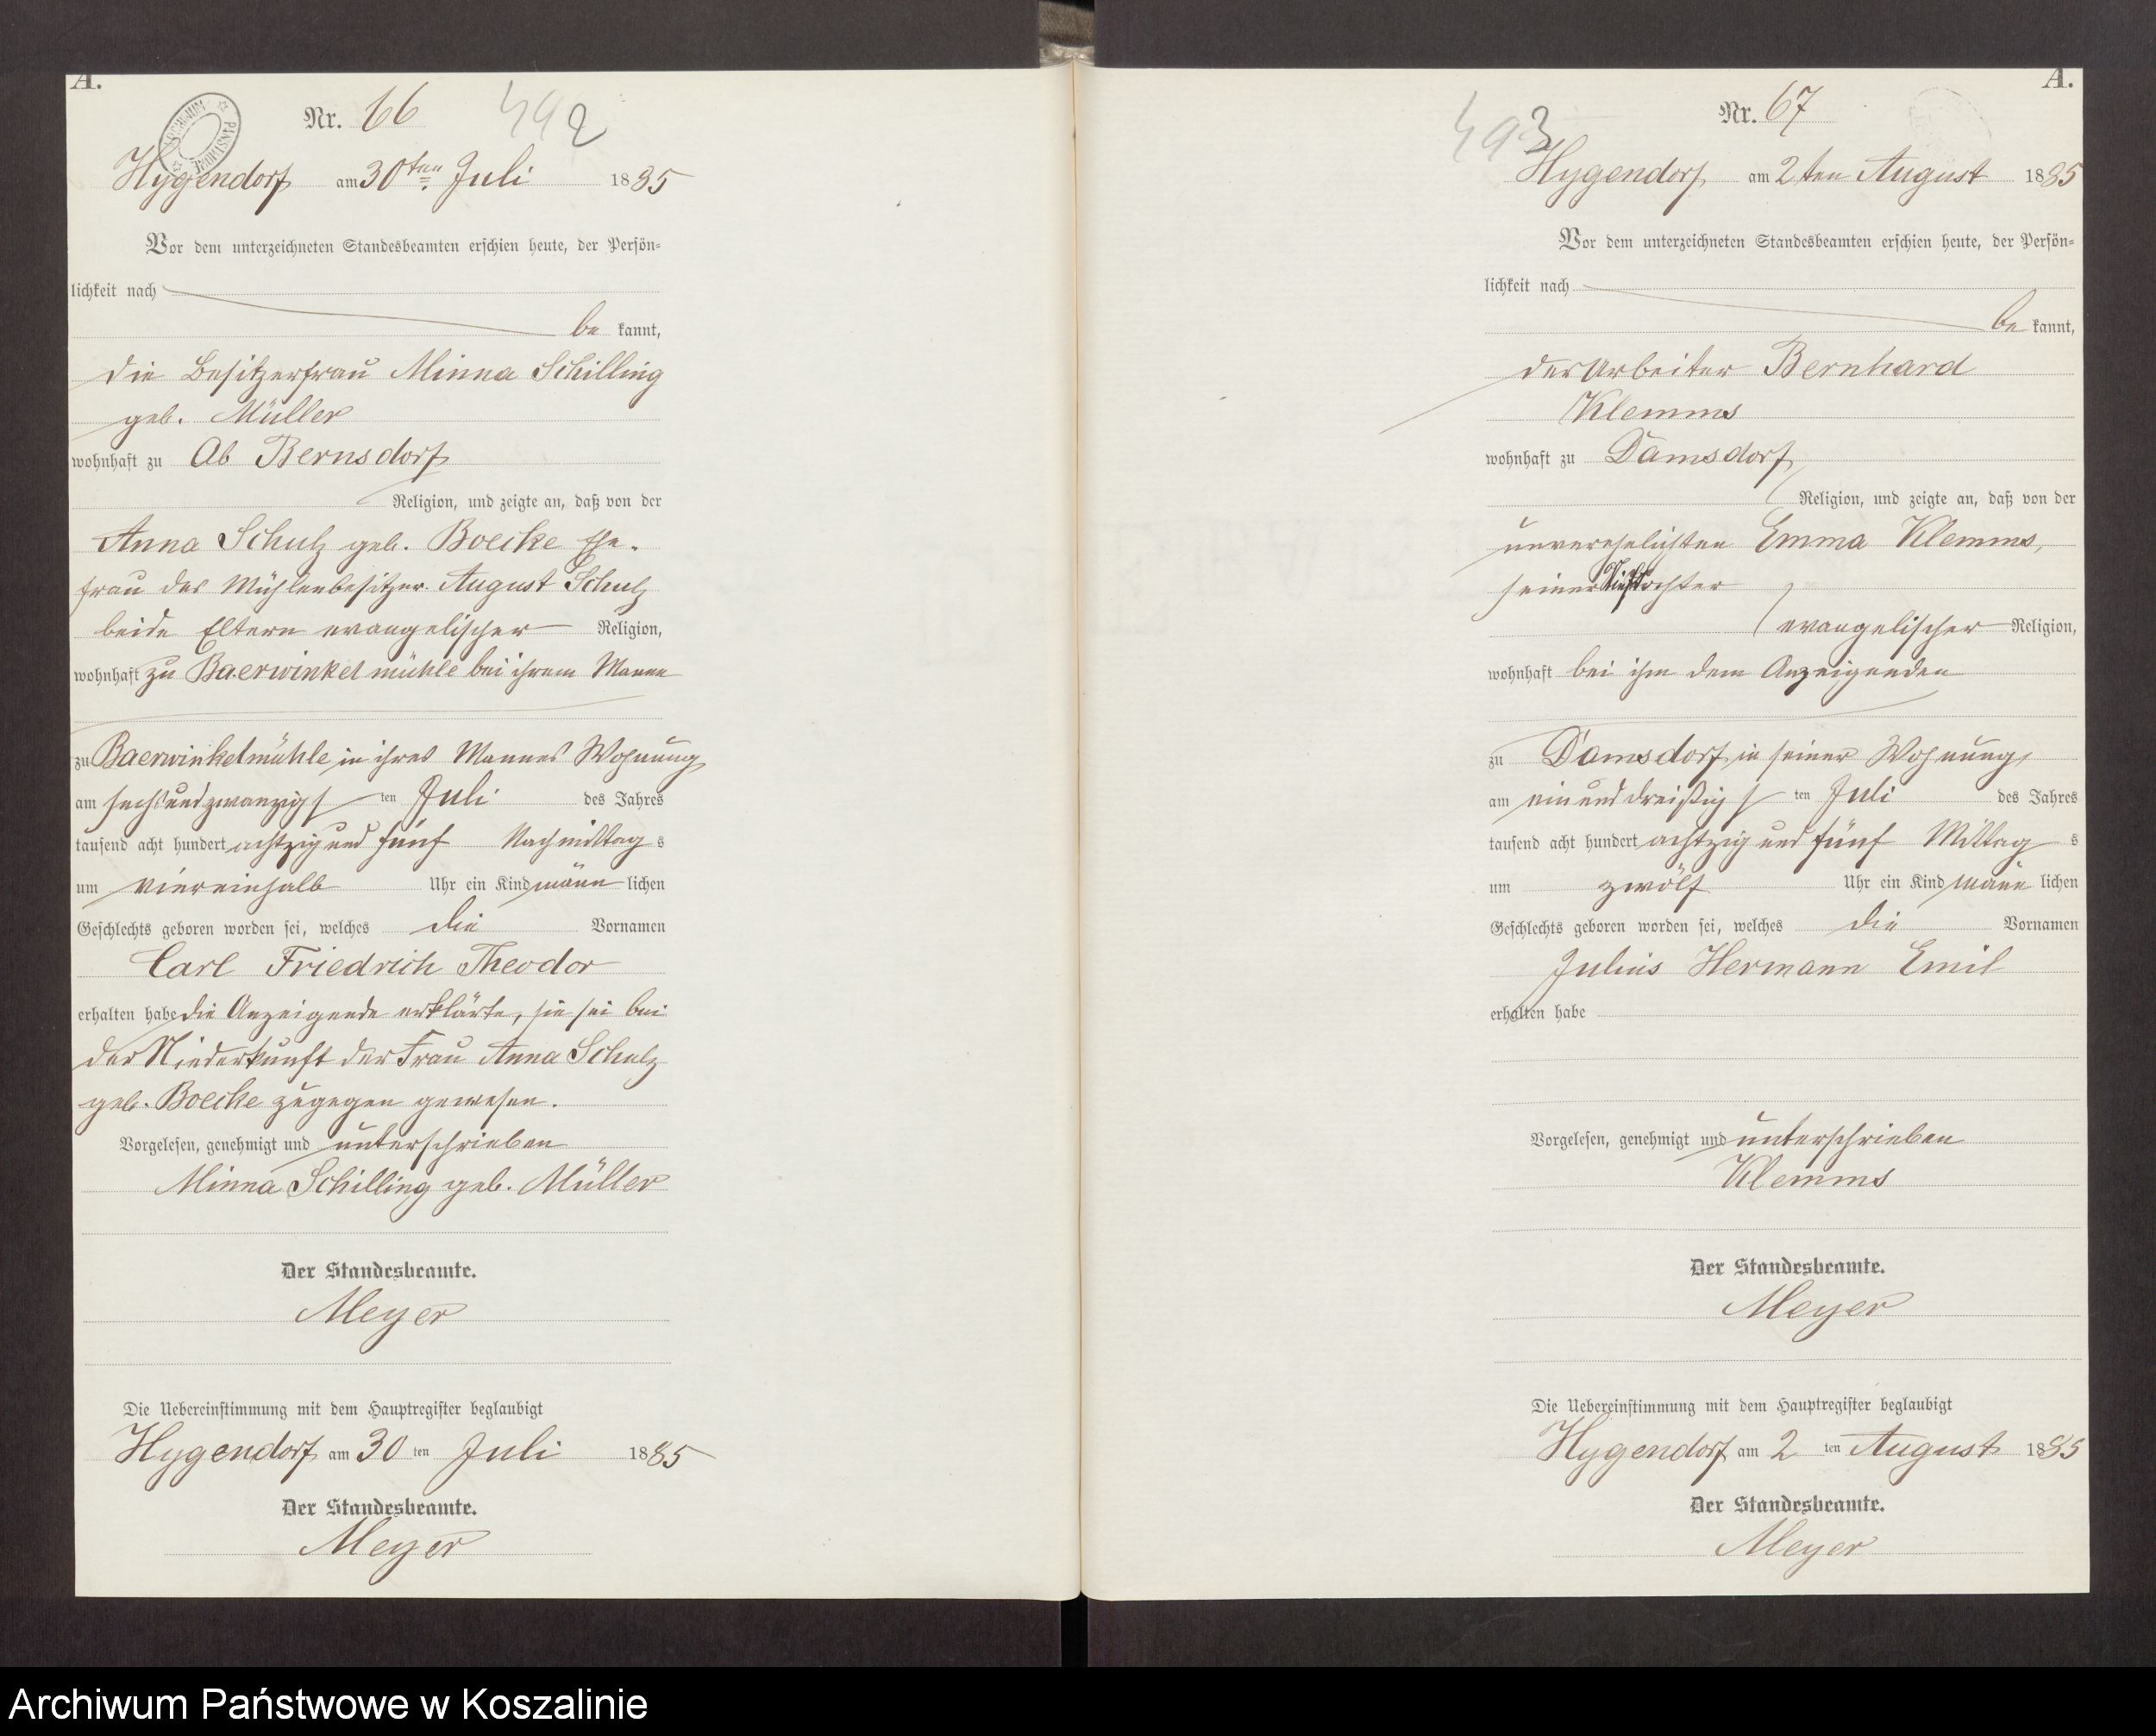 A.
Nr. 66
492
Hygendorf am 30ten Juli 1885
Vor dem unterzeichneten Standesbeamten erschien heute, der Persön=
lichkeit nach
be kannt,
die Besitzerfrau Minna Schilling
geb. Müller
wohnhaft zu Ab Bernsdorf
Religion, und zeigte an, daß von der
Anna Schulz geb. Boecke Ehe-
frau des Mühlenbesitzer August Schulz
beide Eltern evangelischer Religion,
wohnhaft zu Baerwinkelmühle bei ihrem Manne
zu Baerwinkelmühle in ihres Mannes Wohnung
am sechsundzwanzigs ten Juli des Jahres
tausend acht hundert achtzig und fünf Nachmittag s
um viereinhalb Uhr ein Kind männ lichen
Geschlechts geboren worden sei, welches die Vornamen
Carl Friedrich Theodor
erhalten habe die Anzeigende erklärte, sie sei bei
der Niederkunft der Frau Anna Schulz
geb. Boecke zugegen gewesen.
Vorgelesen, genehmigt und unterschrieben
Minna Schilling geb. Müller
Der Standesbeamte.
Meyer
Die Uebereinstimmung mit dem Hauptregister beglaubigt
Hygendorf am 30 ten Juli 1885
Der Standesbeamte.
Meyer
A.
Nr. 67
493
Hygendorf am 2ten August 1885
Vor dem unterzeichneten Standesbeamten erschien heute, der Persön=
lichkeit nach
be kannt,
der Arbeiter Bernhard
Klemms
wohnhaft zu Damsdorf
Religion, und zeigte an, daß von der
unverehelichten Emma Klemms,
seiner Stieftochter
evangelischer Religion,
wohnhaft bei ihm dem Anzeigenden
zu Damsdorf in seiner Wohnung
am ein und dreißigs ten Juli des Jahres
tausend acht hundert achtzig und fünf Mittag s
um zwölf Uhr ein Kind männ lichen
Geschlechts geboren worden sei, welches die Vornamen
Julius Hermann Emil
erhalten habe
Vorgelesen, genehmigt und unterschrieben
Klemms
Der Standesbeamte.
Meyer
Die Uebereinstimmung mit dem Hauptregister beglaubigt
Hygendorf am 2 ten August 1885
Der Standesbeamte.
Meyer
Archiwum Państwowe w Koszalinie